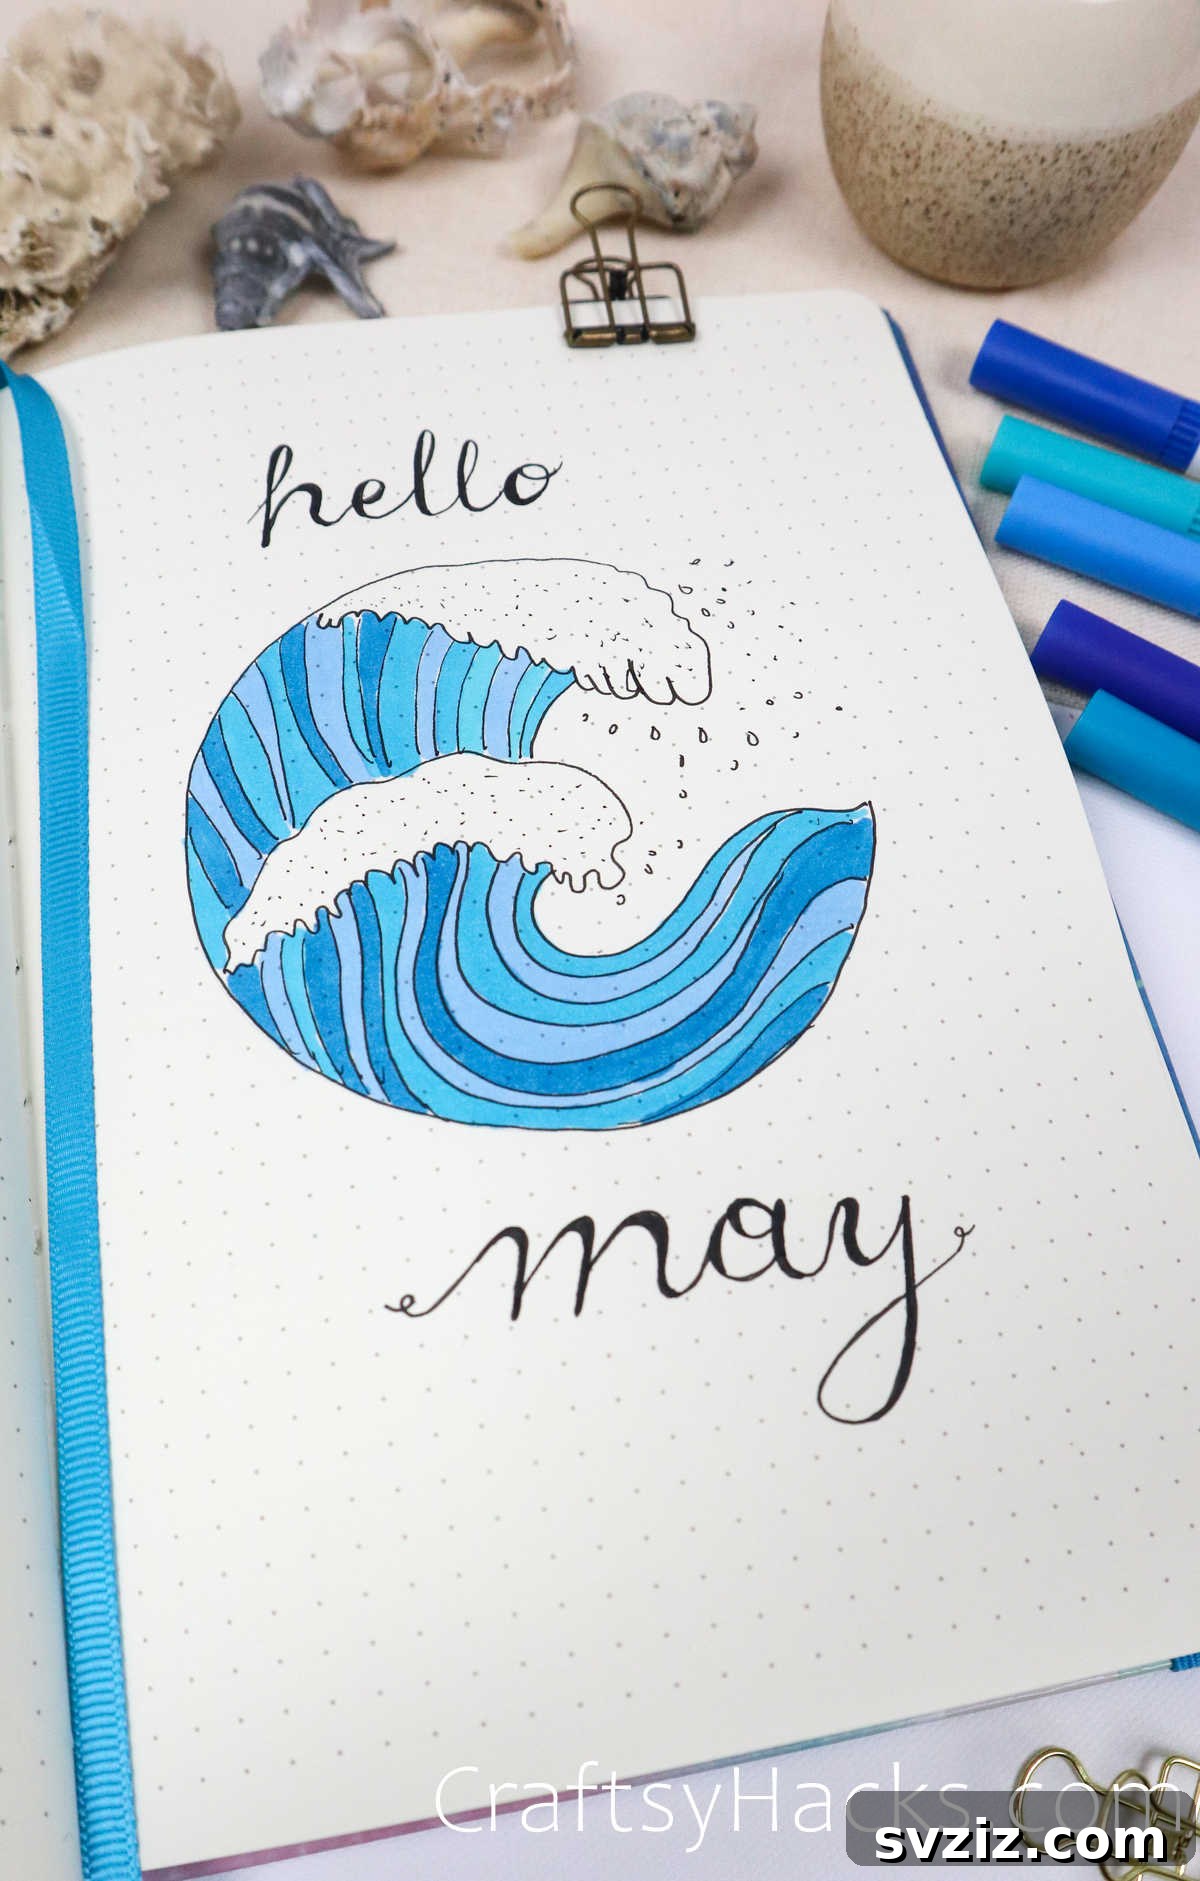 hello
may
CraftsyHacks.com
svziz.com